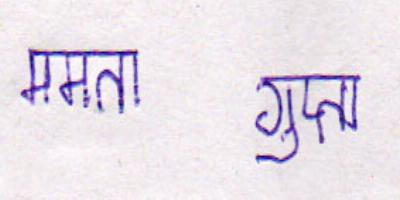 ममता गुप्ता